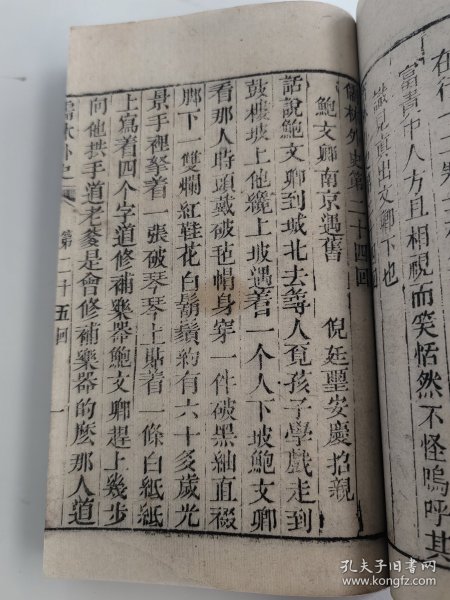 富貴中人方且相視而笑恬然不怪嗚呼其
識見直出文卿下也
儒林外史第二十四回
鮑文卿南京遇舊　倪廷璽安慶招親
話說鮑文卿到城北去尋人覓孩子學戲走到
鼓樓坡上他纔上坡遇着一個人下坡鮑文卿
看那人時頭戴破毡帽身穿一件破黑紬直裰
脚下一雙爛紅鞋花白鬍鬚約有六十多歲光
景手裡拏着一張破琴琴上貼着一條白紙紙
上寫着四個字道修補樂器鮑文卿趕上幾步
向他拱手道老爹是會修補樂器的麽那人道
儒林外史　第二十五回　一
孔夫子旧书网